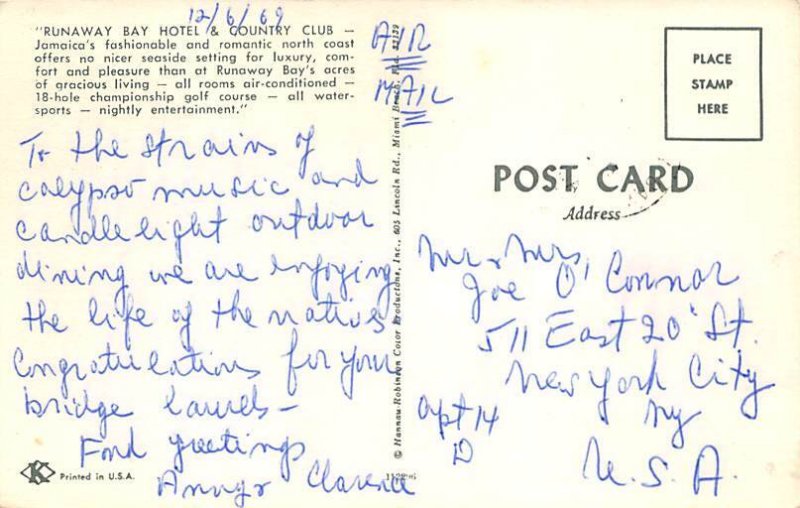 12/6/69
"RUNAWAY BAY HOTEL & COUNTRY CLUB —
Jamaica's fashionable and romantic north coast
offers no nicer seaside setting for luxury, com-
fort and pleasure than at Runaway Bay's acres
of gracious living — all rooms air-conditioned —
18-hole championship golf course — all water-
sports — nightly entertainment."
To the strains of
calypso music and
candlelight outdoor
dining we are enjoying
the life of the natives
Congratulations for your
bridge laurels —
Fond greetings
Clarence
K
Printed in U.S.A.
© Hannau-Robinson Color Productions, Inc., 605 Lincoln Rd., Miami Beach, Fla. 33139
AIR
MAIL
PLACE
STAMP
HERE
POST CARD
Address
Mr & Mrs.
Joe O'Connor
511 East 20' St.
New York City
Apt 14
D
NY
U.S.A.